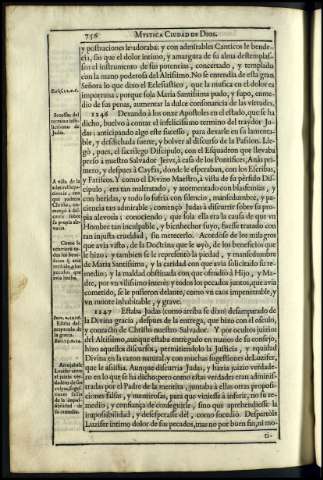 756
MYSTICA CIUDAD DE DIOS.
y postraciones le adoraba: y con admirables Canticos le bende-
cia, sin que el dolor intimo, y amargura de su alma destemplas-
sen el instrumento de sus potencias, concertado, y templado
con la mano poderosa del Altissimo. No se entendia de esta gran
Señora lo que dixo el Eclesiastico, que la musica en el dolor es
importuna; porque sola Maria Santissima pudo, y supo, enme-
dio de sus penas, aumentar la dulce consonancia de las virtudes.
1246 Dexando à los onze Apostoles en el estado, que se ha
dicho, buelvo à contar el infelicissimo termino del traydor Ju-
das: anticipando algo este sucesso, para dexarle en su lamenta-
ble, y desdichada suerte, y bolver al discurso de la Passion. Lle-
gò, pues, el sacrilego Discipulo, con el Esquadron que llevaba
preso à nuestro Salvador Jesvs, à casa de los Pontifices, Anàs pri-
mero, y despues à Cayfàs, donde le esperaban, con los Escribas,
y Fariseos. Y como el Divino Maestro, à vista de su pèrfido Dis-
cipulo, era tan maltratado, y atormentado con blasfemias, y
con heridas, y todo lo sufria con silencio, mansedumbre, y pa-
ciencia tan admirable; començò Judas à discurrir sobre su pro-
pia alevosia; conociendo, que sola ella era la causa de que vn
Hombre tan inculpable, y bienhechor suyo, fuesse tratado con
tan injusta crueldad, sin merecerlo. Acordòse de los milagros
que avia visto, de la Doctrina que le oyò, de los beneficios que
le hizo; y tambien se le representò la piedad, y mansedumbre
de Maria Santissima, y la caridad con que avia solicitado su re-
medio; y la maldad obstinada con que ofendiò à Hijo, y Ma-
dre, por vn vilissimo interès; y todos los pecados juntos, que avia
cometido, se le pusieron delante, como vn caos impenetrable, y
vn monte inhabitable, y grave.
1247 Estaba Judas (como arriba se dixo) desamparado de
la Divina gracia, despues de la entrega, que hizo con el osculo,
y contacto de Christo nuestro Salvador. Y por ocultos juizios
del Altissimo, aunque estaba entregado en manos de su consejo,
hizo aquellos discursos, permitiendolo la Justicia, y equidad
Divina en la razon natural, y con muchas sugestiones de Luzifer,
que le assistia. Aunque discurria Judas, y hazia juizio verdade-
ro en lo que se ha dicho; pero como estas verdades eran adminis-
tradas por el Padre de la mentira, juntaba à ellas otras proposi-
ciones falsas, y mentirosas, para que viniesse à inferir, no su re-
medio, y confiança de conseguirle, sino que aprehendiesse la
impossibilidad, y desesperasse dèl, como sucediò. Despertòle
Luzifer intimo dolor de sus pecados, mas no por buen fin, ni mo-
ti-
Eccli. 22. v. 6.
Sucesso del
termino in-
felicissimo de
Judàs.
A vista de la